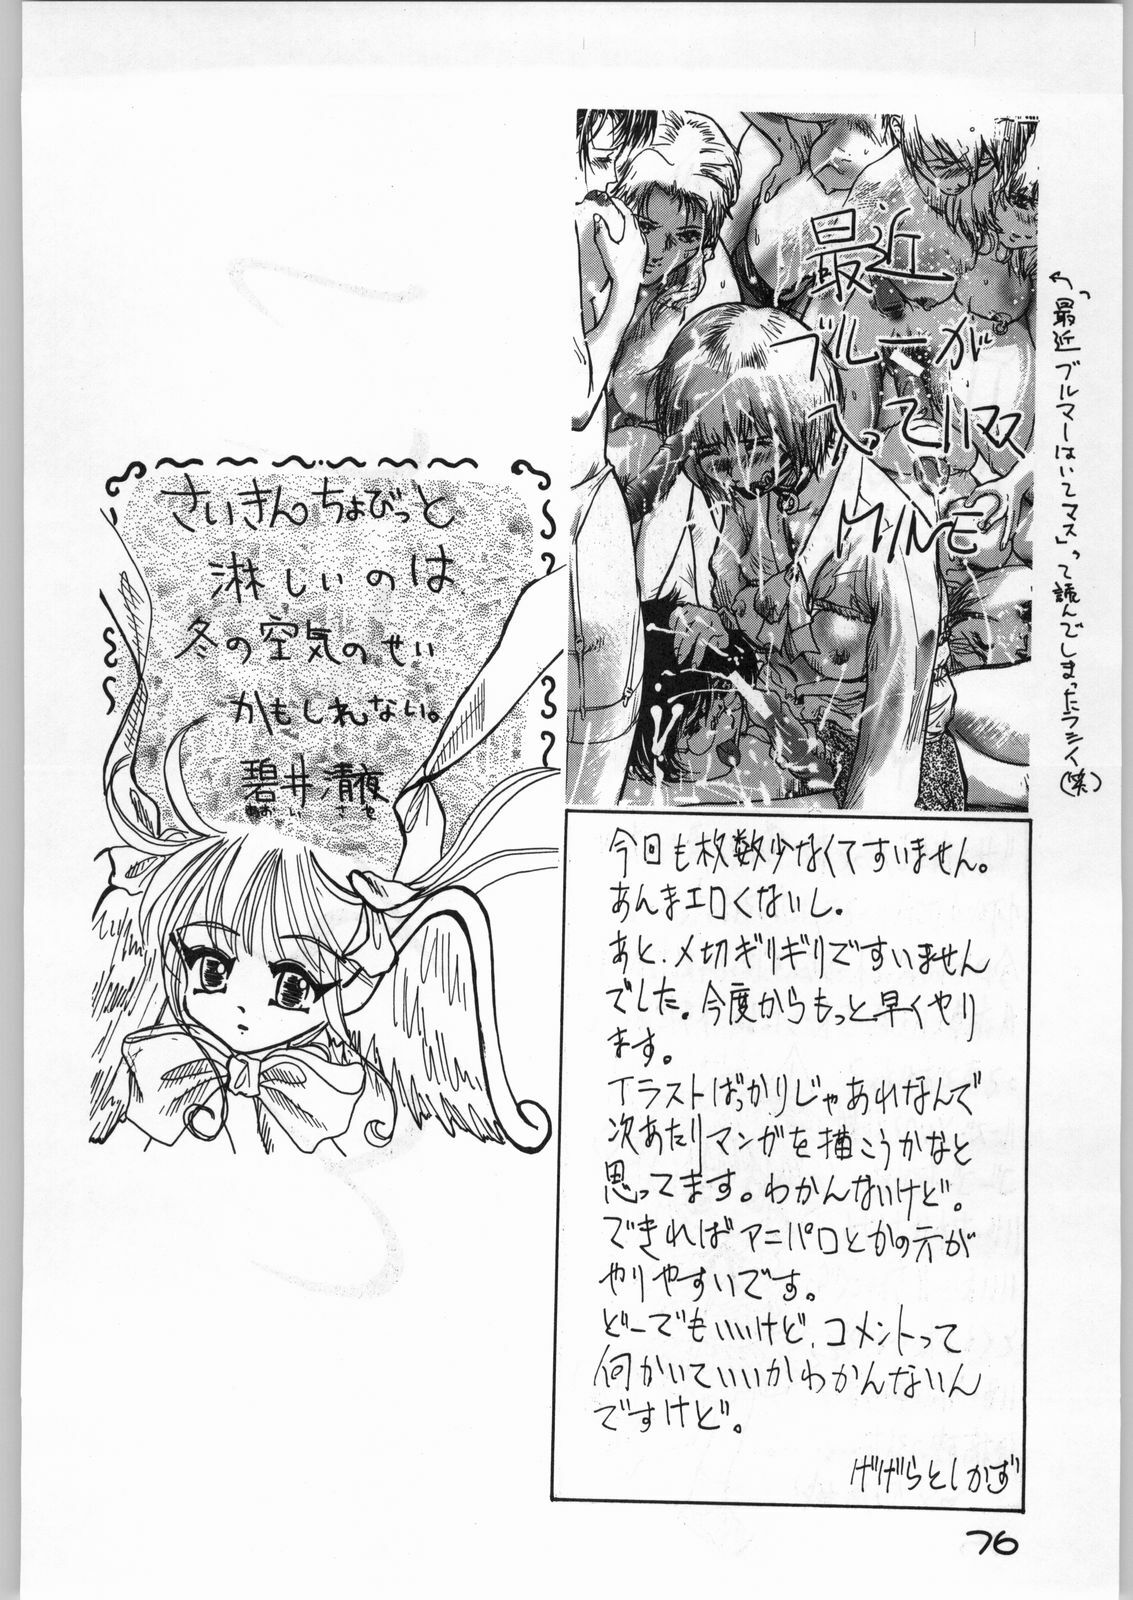 最近
ブルーが
入ってハマス
MINE
↖「最近ブルマーはいてマス」って読んでしまったラシイ(笑)
さいきんちょびっと
淋しいのは
冬の空気のせい
かもしれない。
碧井清夜
あおい さや
今回も枚数少なくてすいません。
あんまエロくないし。
あと、〆切ギリギリですいません
でした。今度からもっと早くやり
ます。
イラストばっかりじゃあれなんで
次あたりマンガを描こうかなと
思ってます。わかんないけど。
できればアニパロとかの方が
やりやすいです。
どーでもいいけど、コメントって
何かいていいかわかんないん
ですけど。
げげらとしかず
76